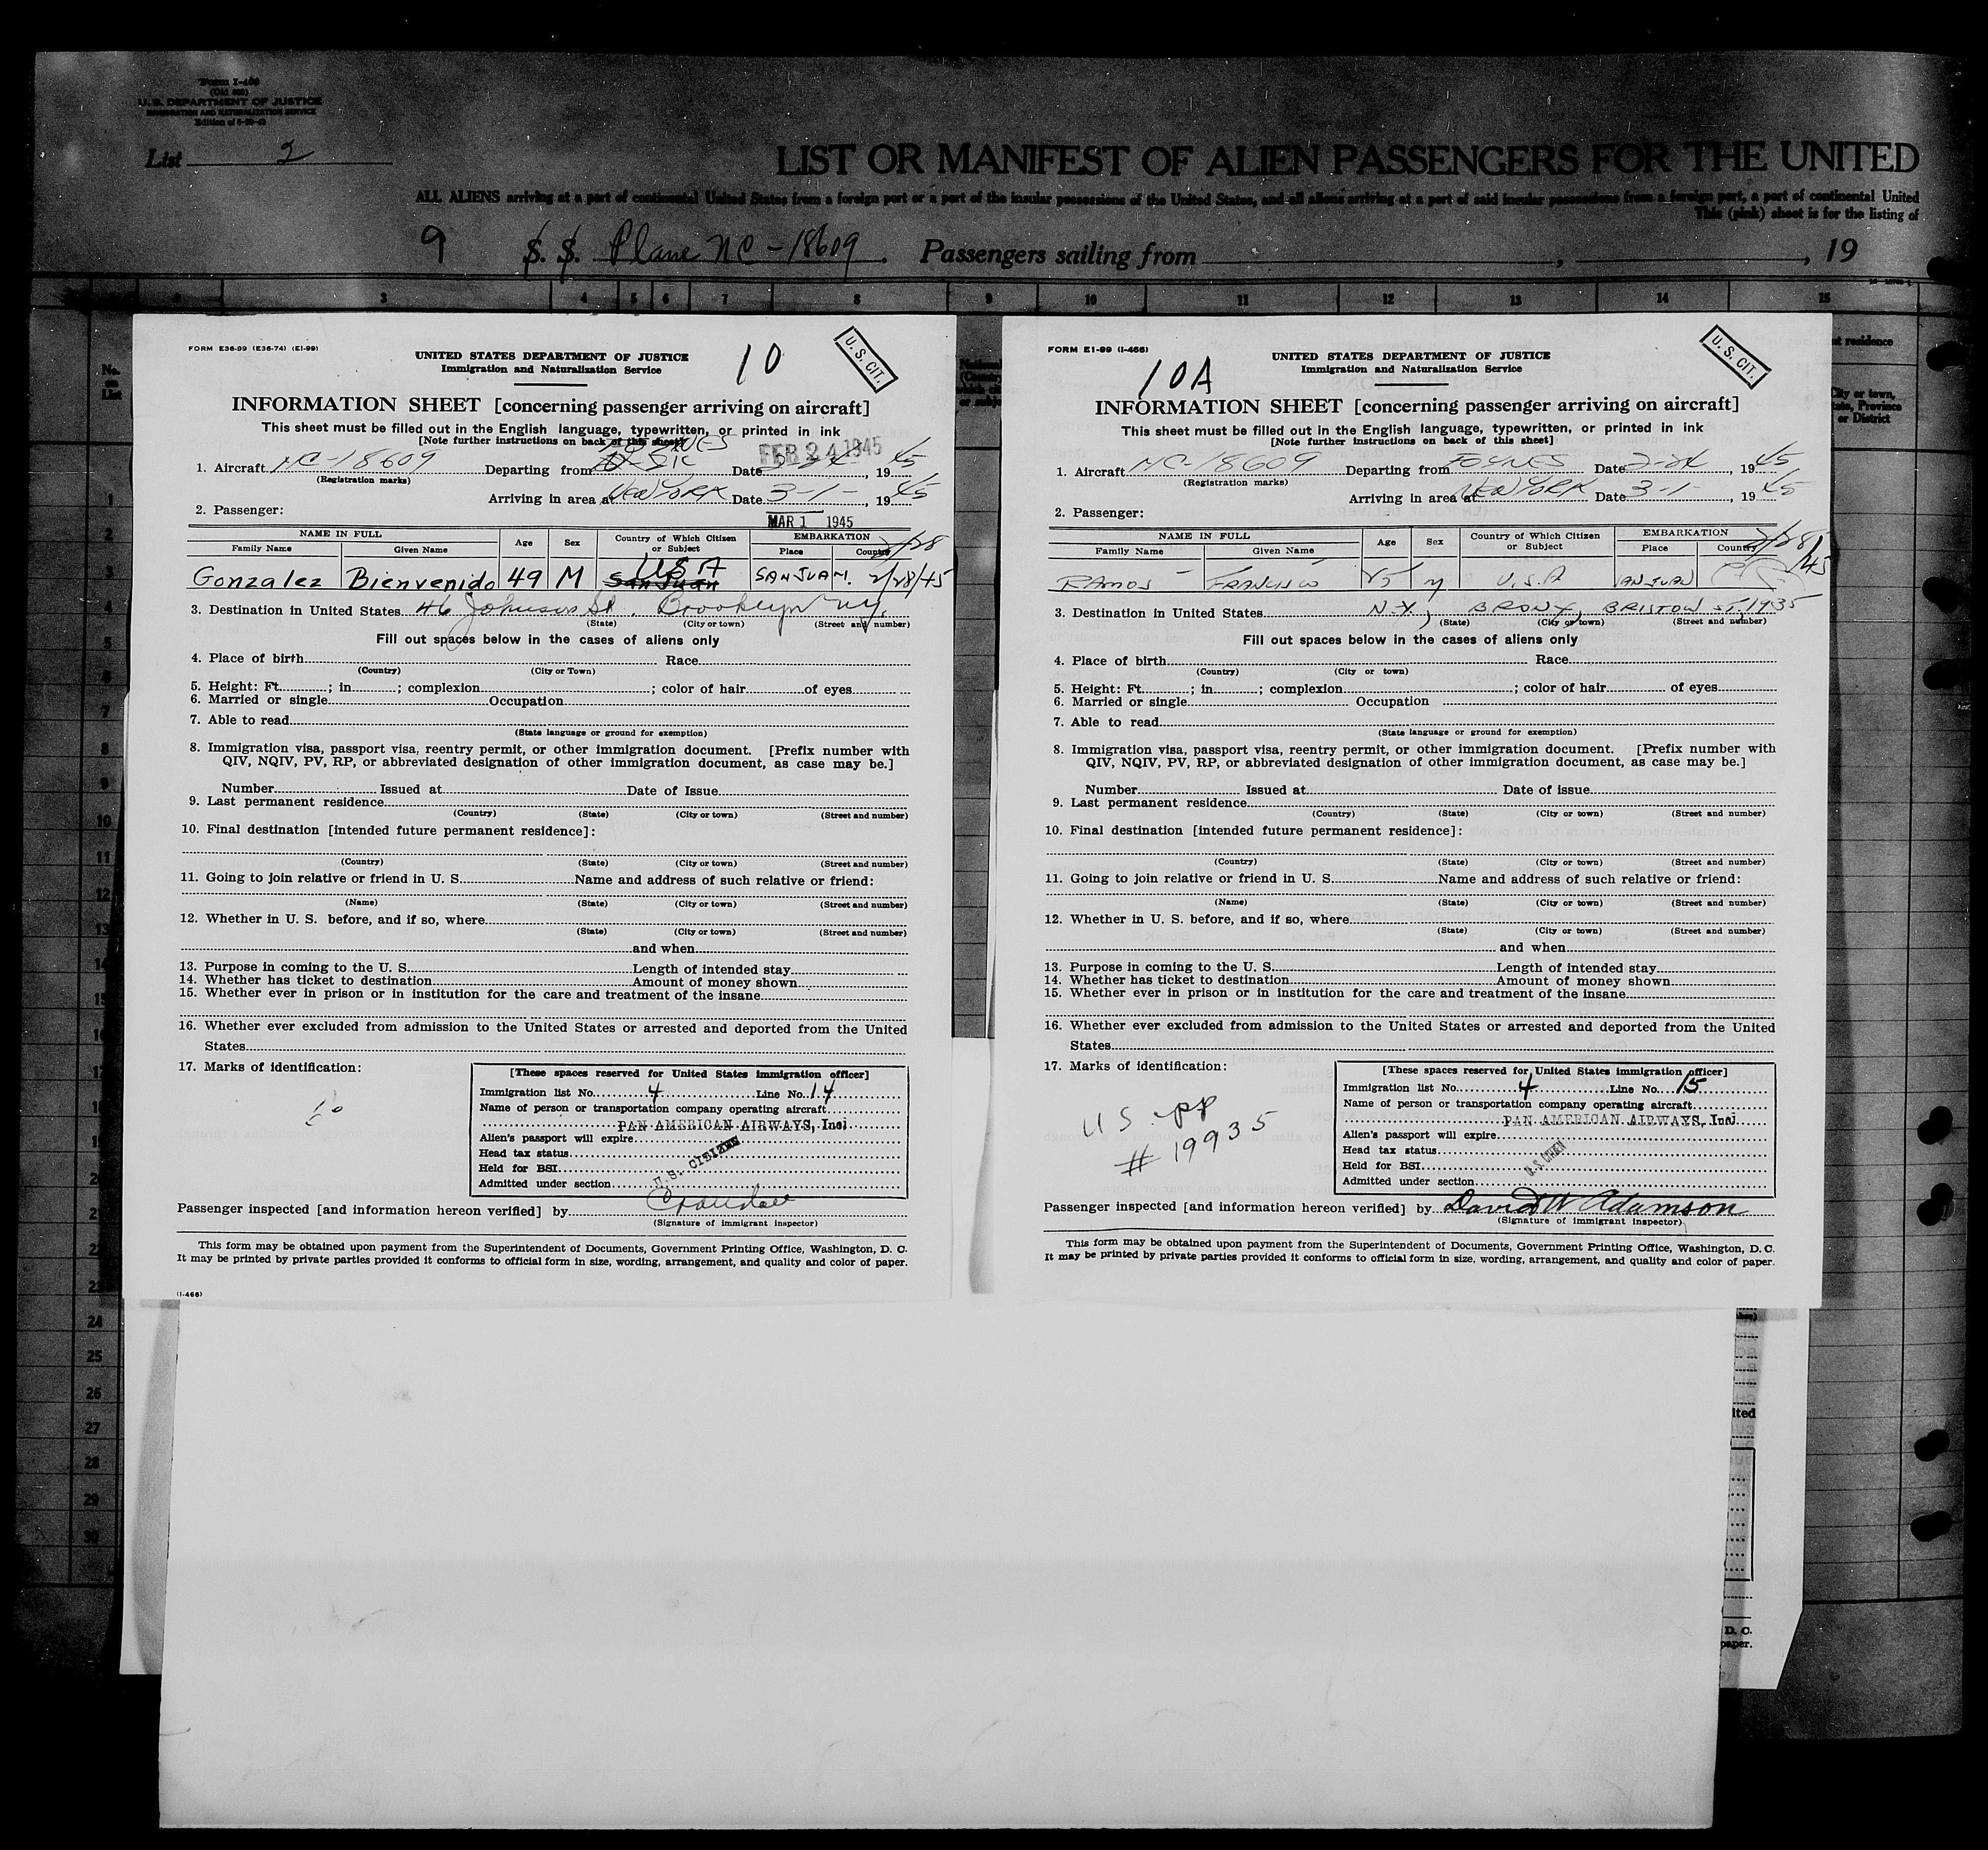 Form I-466
(Old 500)
U.S. DEPARTMENT OF JUSTICE
IMMIGRATION AND NATURALIZATION SERVICE
List 2
LIST OR MANIFEST OF ALIEN PASSENGERS FOR THE UNITED
ALL ALIENS arriving at a port of continental United States from a foreign port or a port of the insular possessions of the United States, and all aliens arriving at a port of said insular possessions from a foreign port, a port of continental United
This (pink) sheet is for the listing of
9 S. S. Plane NC-18609. Passengers sailing from , , 19
3 4 5 6 7 8 9 10 11 12 13 14 15
No. on List
City or town,
or District
FORM E36-99 (E36-74) (E1-99)
10
U. S. CIT.
UNITED STATES DEPARTMENT OF JUSTICE
Immigration and Naturalization Service
INFORMATION SHEET [concerning passenger arriving on aircraft]
This sheet must be filled out in the English language, typewritten, or printed in ink
[Note further instructions on back of this sheet]
FEB 24 1945
1. Aircraft NC-18609 Departing from Date 2-24, 1945
(Registration marks)
Arriving in area at NEW YORK Date 3-1-, 1945
2. Passenger:
MAR 1 1945
NAME IN FULL Age Sex Country of Which Citizen or Subject EMBARKATION
Family Name Given Name Place Country
2/28
USA
Gonzalez Bienvenido 49 M San Juan SAN JUAN. 2/28/45
3. Destination in United States 46 Johnson St. Brooklyn N.Y.
(State) (City or town) (Street and number)
Fill out spaces below in the cases of aliens only
4. Place of birth Race
(Country) (City or Town)
5. Height: Ft. ; in. ; complexion ; color of hair of eyes
6. Married or single Occupation
7. Able to read
(State language or ground for exemption)
8. Immigration visa, passport visa, reentry permit, or other immigration document. [Prefix number with
QIV, NQIV, PV, RP, or abbreviated designation of other immigration document, as case may be.]
Number Issued at Date of Issue
9. Last permanent residence
(Country) (State) (City or town) (Street and number)
10. Final destination [intended future permanent residence]:
(Country) (State) (City or town) (Street and number)
11. Going to join relative or friend in U. S. Name and address of such relative or friend:
(Name) (State) (City or town) (Street and number)
12. Whether in U. S. before, and if so, where
(State) (City or town) (Street and number)
and when
13. Purpose in coming to the U. S. Length of intended stay
14. Whether has ticket to destination Amount of money shown
15. Whether ever in prison or in institution for the care and treatment of the insane
16. Whether ever excluded from admission to the United States or arrested and deported from the United
States
17. Marks of identification:
[These spaces reserved for United States immigration officer]
Immigration list No. 4 Line No. 14
Name of person or transportation company operating aircraft
PAN AMERICAN AIRWAYS, Inc.
Alien's passport will expire
Head tax status
Held for BSI
Admitted under section
U.S. CITIZEN
Passenger inspected [and information hereon verified] by
(Signature of immigrant inspector)
This form may be obtained upon payment from the Superintendent of Documents, Government Printing Office, Washington, D. C.
It may be printed by private parties provided it conforms to official form in size, wording, arrangement, and quality and color of paper.
(I-466)
FORM E1-99 (I-466)
10A
U. S. CIT.
UNITED STATES DEPARTMENT OF JUSTICE
Immigration and Naturalization Service
INFORMATION SHEET [concerning passenger arriving on aircraft]
This sheet must be filled out in the English language, typewritten, or printed in ink
[Note further instructions on back of this sheet]
1. Aircraft NC-18609 Departing from FOYNES Date 2-24, 1945
(Registration marks)
Arriving in area at NEW YORK Date 3-1-, 1945
2. Passenger:
NAME IN FULL Age Sex Country of Which Citizen or Subject EMBARKATION
Family Name Given Name Place Country
2/28/45
RAMOS FRANCISCO U.S.A SAN JUAN
3. Destination in United States N.Y., BRONX, BRISTOW ST. 1935
(State) (City or town) (Street and number)
Fill out spaces below in the cases of aliens only
4. Place of birth Race
(Country) (City or town)
5. Height: Ft. ; in. ; complexion ; color of hair of eyes
6. Married or single Occupation
7. Able to read
(State language or ground for exemption)
8. Immigration visa, passport visa, reentry permit, or other immigration document. [Prefix number with
QIV, NQIV, PV, RP, or abbreviated designation of other immigration document, as case may be.]
Number Issued at Date of issue
9. Last permanent residence
(Country) (State) (City or town) (Street and number)
10. Final destination [intended future permanent residence]:
(Country) (State) (City or town) (Street and number)
11. Going to join relative or friend in U. S. Name and address of such relative or friend:
(Name) (State) (City or town) (Street and number)
12. Whether in U. S. before, and if so, where
(State) (City or town) (Street and number)
and when
13. Purpose in coming to the U. S. Length of intended stay
14. Whether has ticket to destination Amount of money shown
15. Whether ever in prison or in institution for the care and treatment of the insane
16. Whether ever excluded from admission to the United States or arrested and deported from the United
States
17. Marks of identification:
US. pp
# 19935
[These spaces reserved for United States immigration officer]
Immigration list No. 4 Line No. 15
Name of person or transportation company operating aircraft
PAN AMERICAN AIRWAYS, Inc.
Alien's passport will expire
Head tax status
Held for BSI
Admitted under section
U.S. CITIZEN
Passenger inspected [and information hereon verified] by David W Adamson
(Signature of immigrant inspector)
This form may be obtained upon payment from the Superintendent of Documents, Government Printing Office, Washington, D. C.
It may be printed by private parties provided it conforms to official form in size, wording, arrangement, and quality and color of paper.
D. C.
paper.